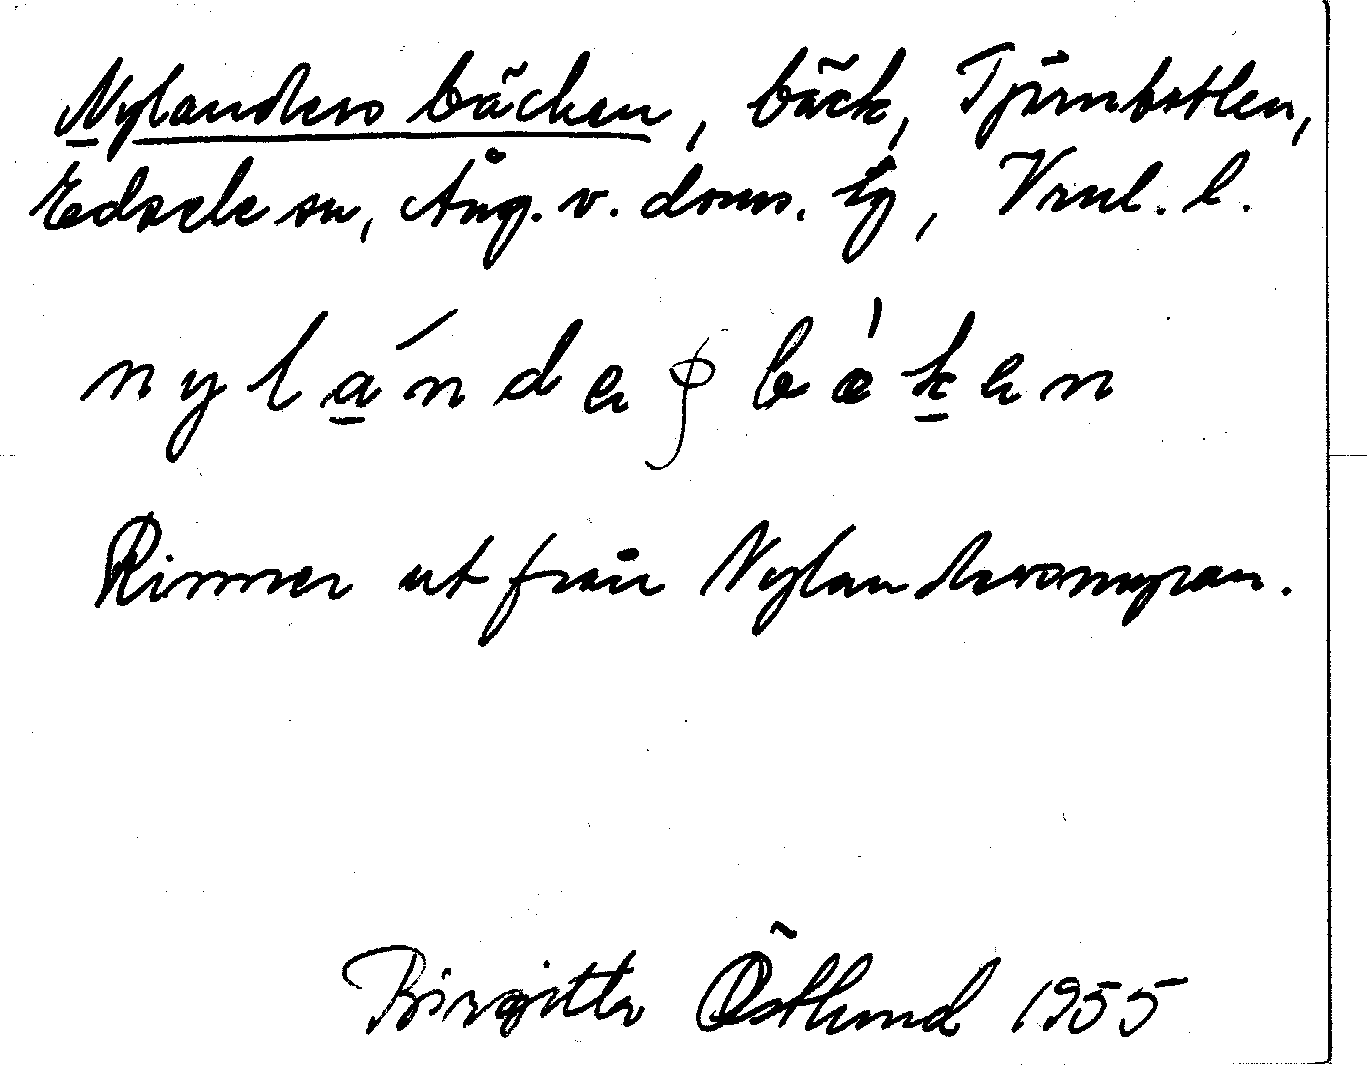 Nylanders bäcken, bäck, Tjärnbotten,
Edsele sn, Ång. v. doms. tg, Vrnl. l.
nylándeʂbæ̀ken
Rinner ut från Nylandersmyran.
Birgitta Östlund 1955